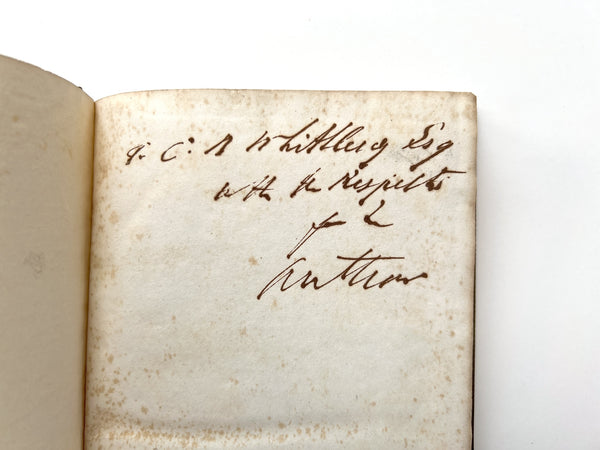 C. N Whittlesey Esq
with the Respects
of
Author